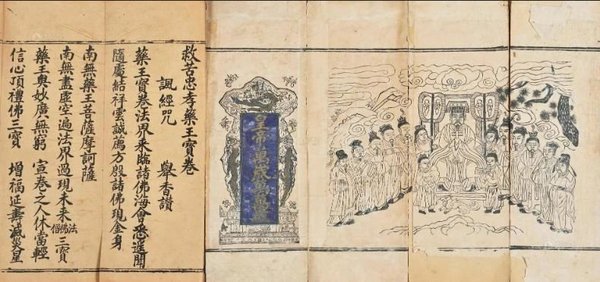 皇帝萬歲萬萬歲
救苦忠孝藥王寶卷
諷經咒 舉香讃
藥王寶卷法界来臨諸佛海會悉遥聞
隨處結祥雲誠方殷諸佛現金身
南無藥王菩薩摩訶薩
南無盡虛空遍法界過現未来佛法僧三寶
藥王妙廣無窮 宣卷之人休當輕
信心頂禮佛三寶 增福延壽滅災